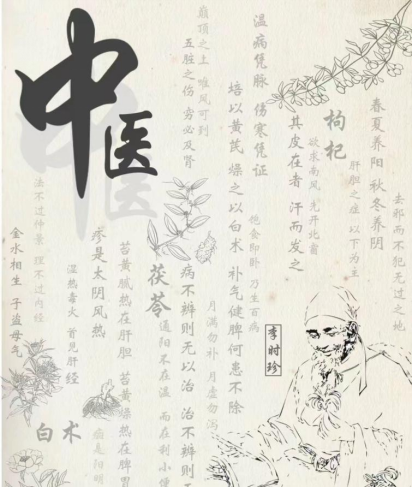 中医
崩顶之主 唯风可到
五脏之伤 穷必及肾
温病凭脉 伤寒凭证
培以黄芪 燥之以白术 补气健脾何患不除
饱食即卧 乃生百病
枸杞
其皮在者 汗而发之
欲求南风 先开北窗
肝胆之症 以下为主
春夏养阳 秋冬养阴
去邪而不犯无过之地
法不过仲景 理不过内经
金水相生 子益母气
湿热毒火 首见肝经
疹是太阴风热
苔黄腻热在肝胆 苔黄燥热在脾胃
茯苓
通阳不在温 而在利小便
病不辨则无以治 治不辨则无
月满勿补 月虚勿泻
白术
李时珍